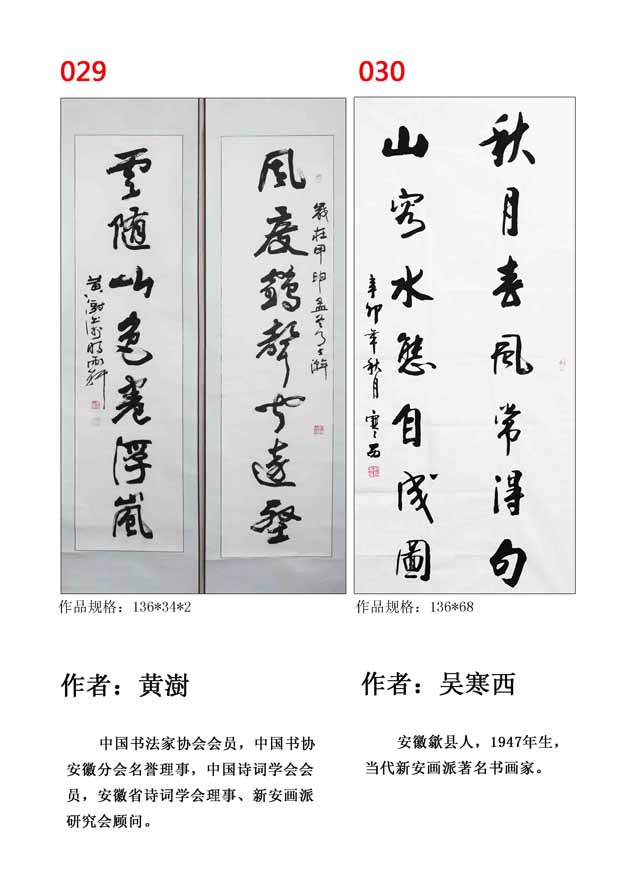 029
风度鹤声
远壑
云随山色卷浮岚
作品规格：136*34*2
作者：黄澍
中国书法家协会会员，中国书协
安徽分会名誉理事，中国诗词学会会
员，安徽省诗词学会理事、新安画派
研究会顾问。
030
秋月春风常得句
山容水态自成图
辛卯年秋月 寒西
作品规格：136*68
作者：吴寒西
安徽歙县人，1947年生，
当代新安画派著名书画家。